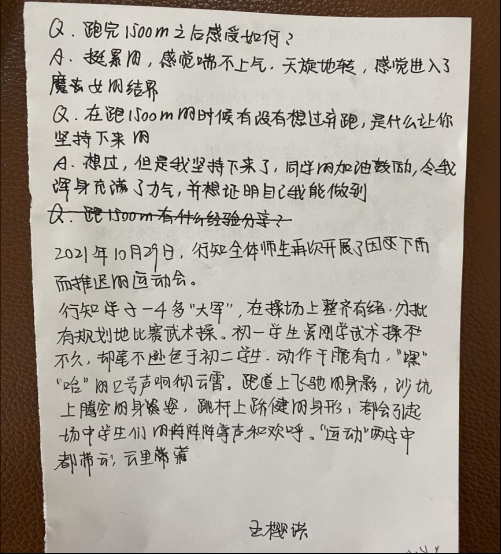 Q. 跑完1500m之后感受如何?
A. 挺累的,感觉喘不上气,天旋地转,感觉进入了
魔法女的结界
Q. 在跑1500m的时候有没有想过弃跑,是什么让你
坚持下来的
A. 想过,但是我坚持下来了,同学的加油鼓励,令我
浑身充满了力气,并想证明自己我能做到
Q. 跑1500m有什么经验分享?
2021年10月29日,行知全体师生再次开展了因下雨
而推迟的运动会。
行知学子一4多"大军",在操场上整齐有绪,分批
有规划地比赛武术操。初一学生虽刚学武术操不
不久,却毫不逊色于初二学生,动作干脆有力,"嘿"
"哈"的口号声响彻云霄。跑道上飞驰的身影,沙坑
上腾空的身姿,跳杆上矫健的身形,都会引起
场中学生们的阵阵掌声和欢呼。"运动"两字中
都带云,云里带
王樱